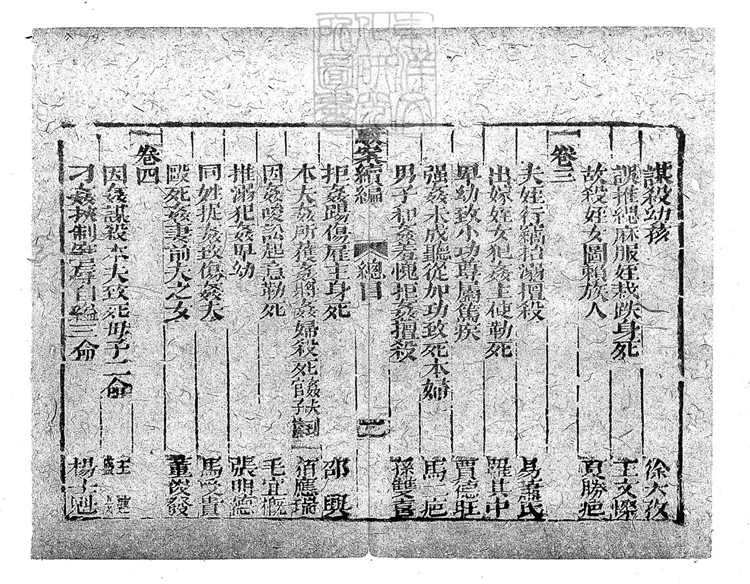 謀殺幼孩 徐大孜
誤推緦麻服姪栽跌身死 王文燦
故殺姪女圖賴族人 袁勝疤
卷三
夫姪行竊招溺擅殺 易蕭氏
出嫁姪女犯姦主使勒死 羅其中
卑幼致小功尊屬篤疾 賈德旺
强姦未成聽從加功致死本婦 馬疤
男子和姦羞愧拒姦擅殺 孫雙喜
案續編 總目 二
拒姦踢傷雇主身死 邵興
本夫姦所獲姦將姦婦殺死姦夫 須應瑞
因姦唆訟起意勒死 毛宜概
推溺犯姦卑幼 張明德
同姓抚姦致傷姦夫 馬受貴
毆死姦妻前夫之女 董俊發
卷四
因姦謀殺本夫致死母子二命 王
刁姦挾制 辱自縊三命 楊士